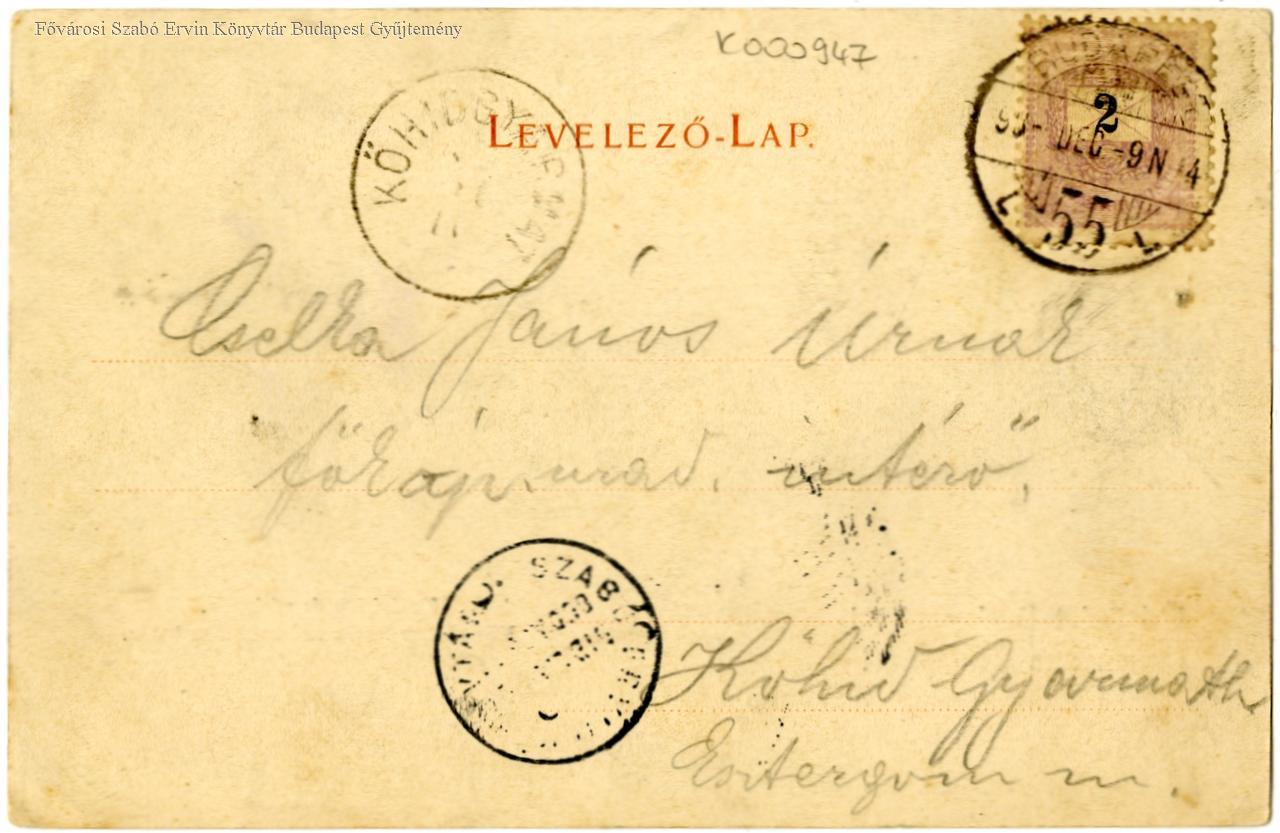 Fővárosi Szabó Ervin Könyvtár Budapest Gyűjtemény
K000947
BUDAPEST
2
98- DEC -9 N 4
55
KŐHIDGYARMAT
LEVELEZŐ-LAP.
Cselka János Úrnak
intéző,
SZABÓ ERVIN
Kőhid Gyarmath
Esztergom m.